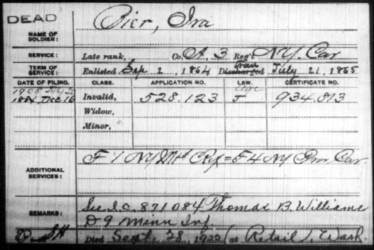 DEAD
Pier, Ira
NAME OF SOLDIER:
SERVICE:
Late rank, Co. A, 3 Reg't N.Y. Cav
TERM OF SERVICE:
Enlisted Sep. 2, 1864 Discharged July 21, 1865
DATE OF FILING. CLASS. APPLICATION NO. LAW. CERTIFICATE NO.
1884 Dec 16 Invalid, 528.123 J 934,813
Widow,
Minor,
ADDITIONAL SERVICES:
F 1 N.Y. Mtd = F 4 N.Y. Prov Cav.
REMARKS:
871084 Thomas B. Williams
D 9 Minn Inf
Died Sept. 28, 1920 at Wash.